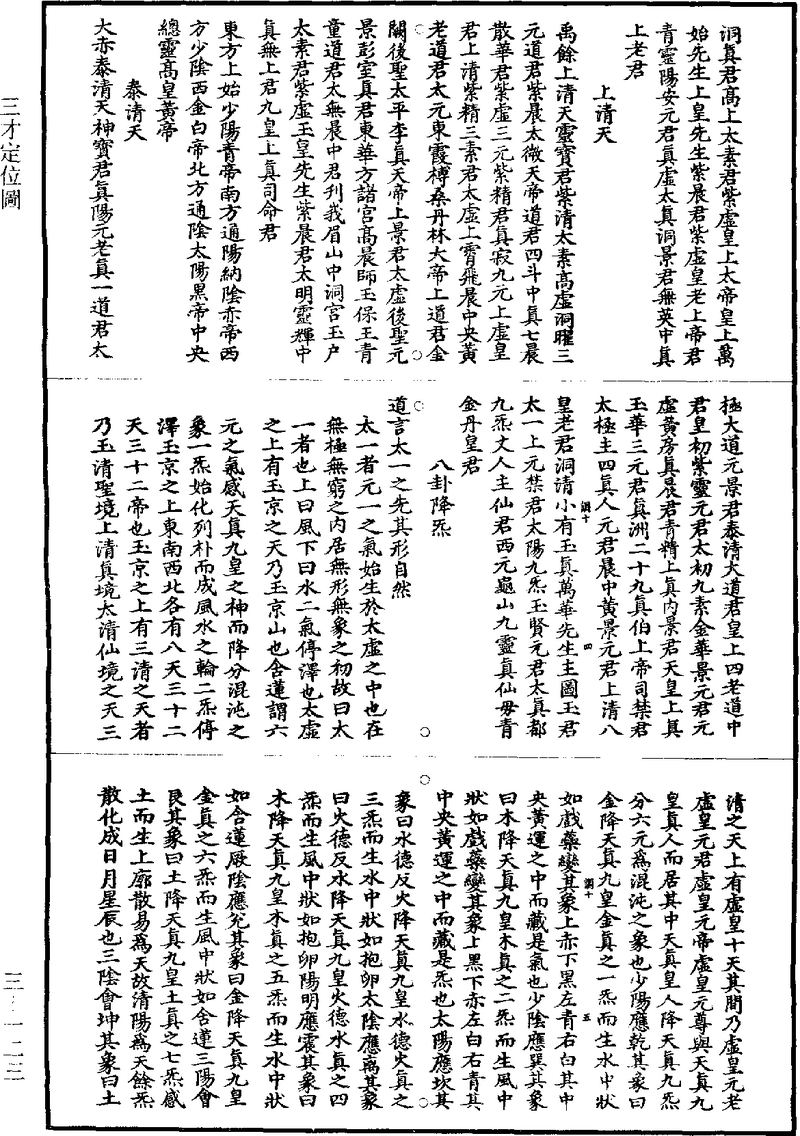 洞真君高上太素君紫虛皇上太帝皇上萬
始先生上皇先生紫晨君紫虛皇老上帝君
青靈陽安元君真虛太真洞景君無英中真
上老君
上清天
禹餘上清天靈寶君紫清太素高虛洞曜三
元道君紫晨太微天帝道君四斗中真七晨
散華君紫虛三元紫精君真寂九元上虛皇
君上清紫精三素君太虛上霄飛晨中央黃
老道君太元東霞榑桑丹林大帝上道君金
闕後聖太平李真天帝上景君太虛後聖元
景彭室真君東華方諸宮高晨師玉保王青
童道君太無晨中君刊峩眉山中洞宮玉户
太素君紫虛玉皇先生紫晨君太明靈輝中
真無上君九皇上真司命君
東方上始少陽青帝南方通陽納陰赤帝西
方少陰西金白帝北方通陰太陽黑帝中央
總靈高皇黃帝
泰清天
大赤泰清天神寶君真陽元老真一道君太
極大道元景君泰清大道君皇上四老道中
君皇初紫靈元君太初九素金華景元君元
虛黃房真晨君青精上真內景君天皇上真
玉華三元君真洲二十九真伯上帝司禁君
太極主四真人元君晨中黃景元君上清八
皇老君洞清小有玉真萬華先生主圖玉君
太一上元禁君太陽九炁玉賢元君太真都
九炁丈人主仙君西元龜山九靈真仙毋青
金丹皇君
八卦降炁
道言太一之先其形自然
太一者元一之氣始生於太虛之中也在
無極無窮之內居無形無象之初故曰太
一者也上曰風下曰水二氣停澤也太虛
之上有玉京之天乃玉京山也含蓮謂六
元之氣感天真九皇之神而降分混沌之
象一炁始化列朴而成風水之輪二炁停
澤玉京之上東南西北各有八天三十二
天三十二帝也玉京之上有三清之天者
乃玉清聖境上清真境太清仙境之天三
清之天上有虛皇十天其間乃虛皇元老
虛皇元君虛皇元帝虛皇元尊與天真九
皇真人而居其中天真皇人降天真九炁
分六元為混沌之象也少陽應乾其象曰
金降天真九皇金真之一炁而生水中狀
如戲藥變其象上赤下黑左青右白其中
央黃運之中而藏是氣也少陰應巽其象
曰木降天真九皇木真之二炁而生風中
狀如戲藥變其象上黑下赤左白右青其
中央黃運之中而藏是炁也太陽應坎其
象曰水德反火降天真九皇水德火真之
三炁而生水中狀如抱卵太陰應离其象
曰火德反水降天真九皇火德水真之四
炁而生風中狀如抱卵陽明應震其象曰
木降天真九皇木真之五炁而生水中狀
如含蓮厥陰應兊其象曰金降天真九皇
金真之六炁而生風中狀如含蓮三陽會
艮其象曰土降天真九皇土真之七炁感
土而生上廓散易為天故清陽為天餘炁
散化成日月星辰也三陰會坤其象曰土
三才定位圖
三·一二三